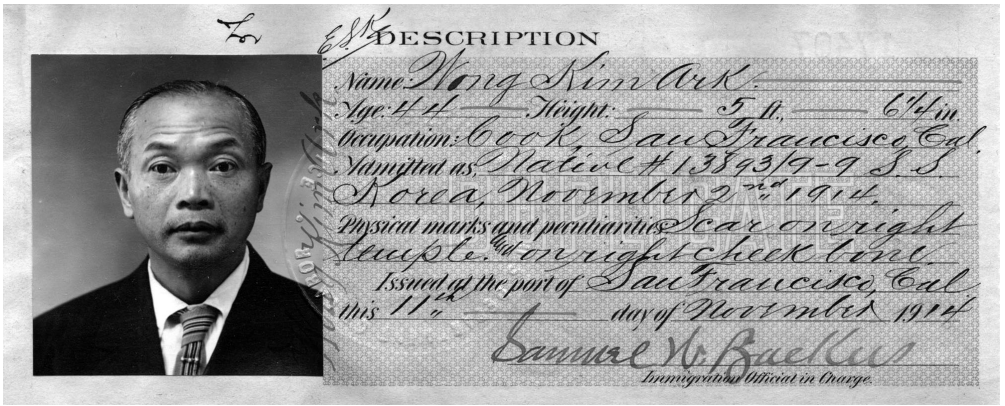 E.S.K.
DESCRIPTION
Name: Wong Kim Ark.
Age: 44 Height: 5 ft., 6 1/4 in.
Occupation: Cook, San Francisco, Cal.
Admitted as Native # 13893/9-9 S.S.
Korea, November 2nd 1914.
Physical marks and peculiarities Scar on right
temple. on right cheek bone.
Issued at the port of San Francisco, Cal
this 11th day of November 1914
Samuel W. Backus
Immigration Official in Charge.